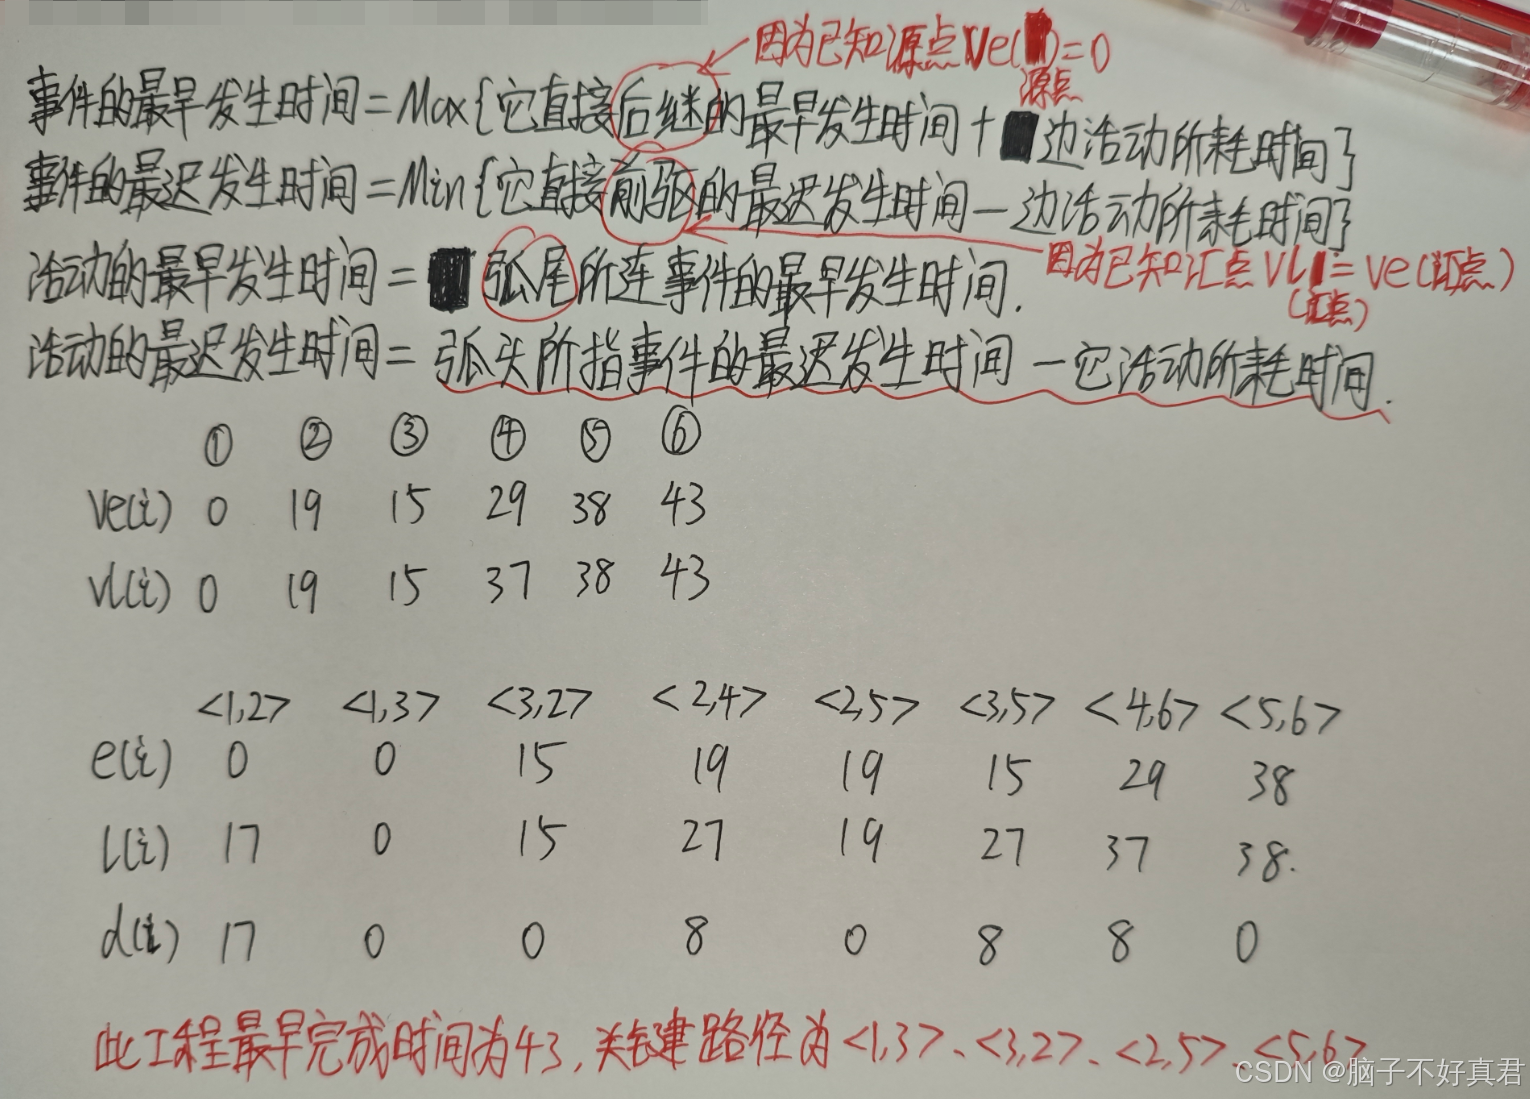 因为已知源点Ve( )=0
源点
事件的最早发生时间=Max{它直接后继的最早发生时间+ 边活动所耗时间}
事件的最迟发生时间=Min{它直接前驱的最迟发生时间—边活动所耗时间}
因为已知汇点Vl =ve(汇点)
(汇点)
活动的最早发生时间= 弧尾所连事件的最早发生时间.
活动的最迟发生时间=弧头所指事件的最迟发生时间—它活动所耗时间.
① ② ③ ④ ⑤ ⑥
ve(i) 0 19 15 29 38 43
vl(i) 0 19 15 37 38 43
<1,2> <1,3> <3,2> <2,4> <2,5> <3,5> <4,6> <5,6>
e(i) 0 0 15 19 19 15 29 38
l(i) 17 0 15 27 19 27 37 38.
d(i) 17 0 0 8 0 8 8 0
此工程最早完成时间为43,关键路径为<1,3>、<3,2>、<2,5>、<5,6>
CSDN @脑子不好真君